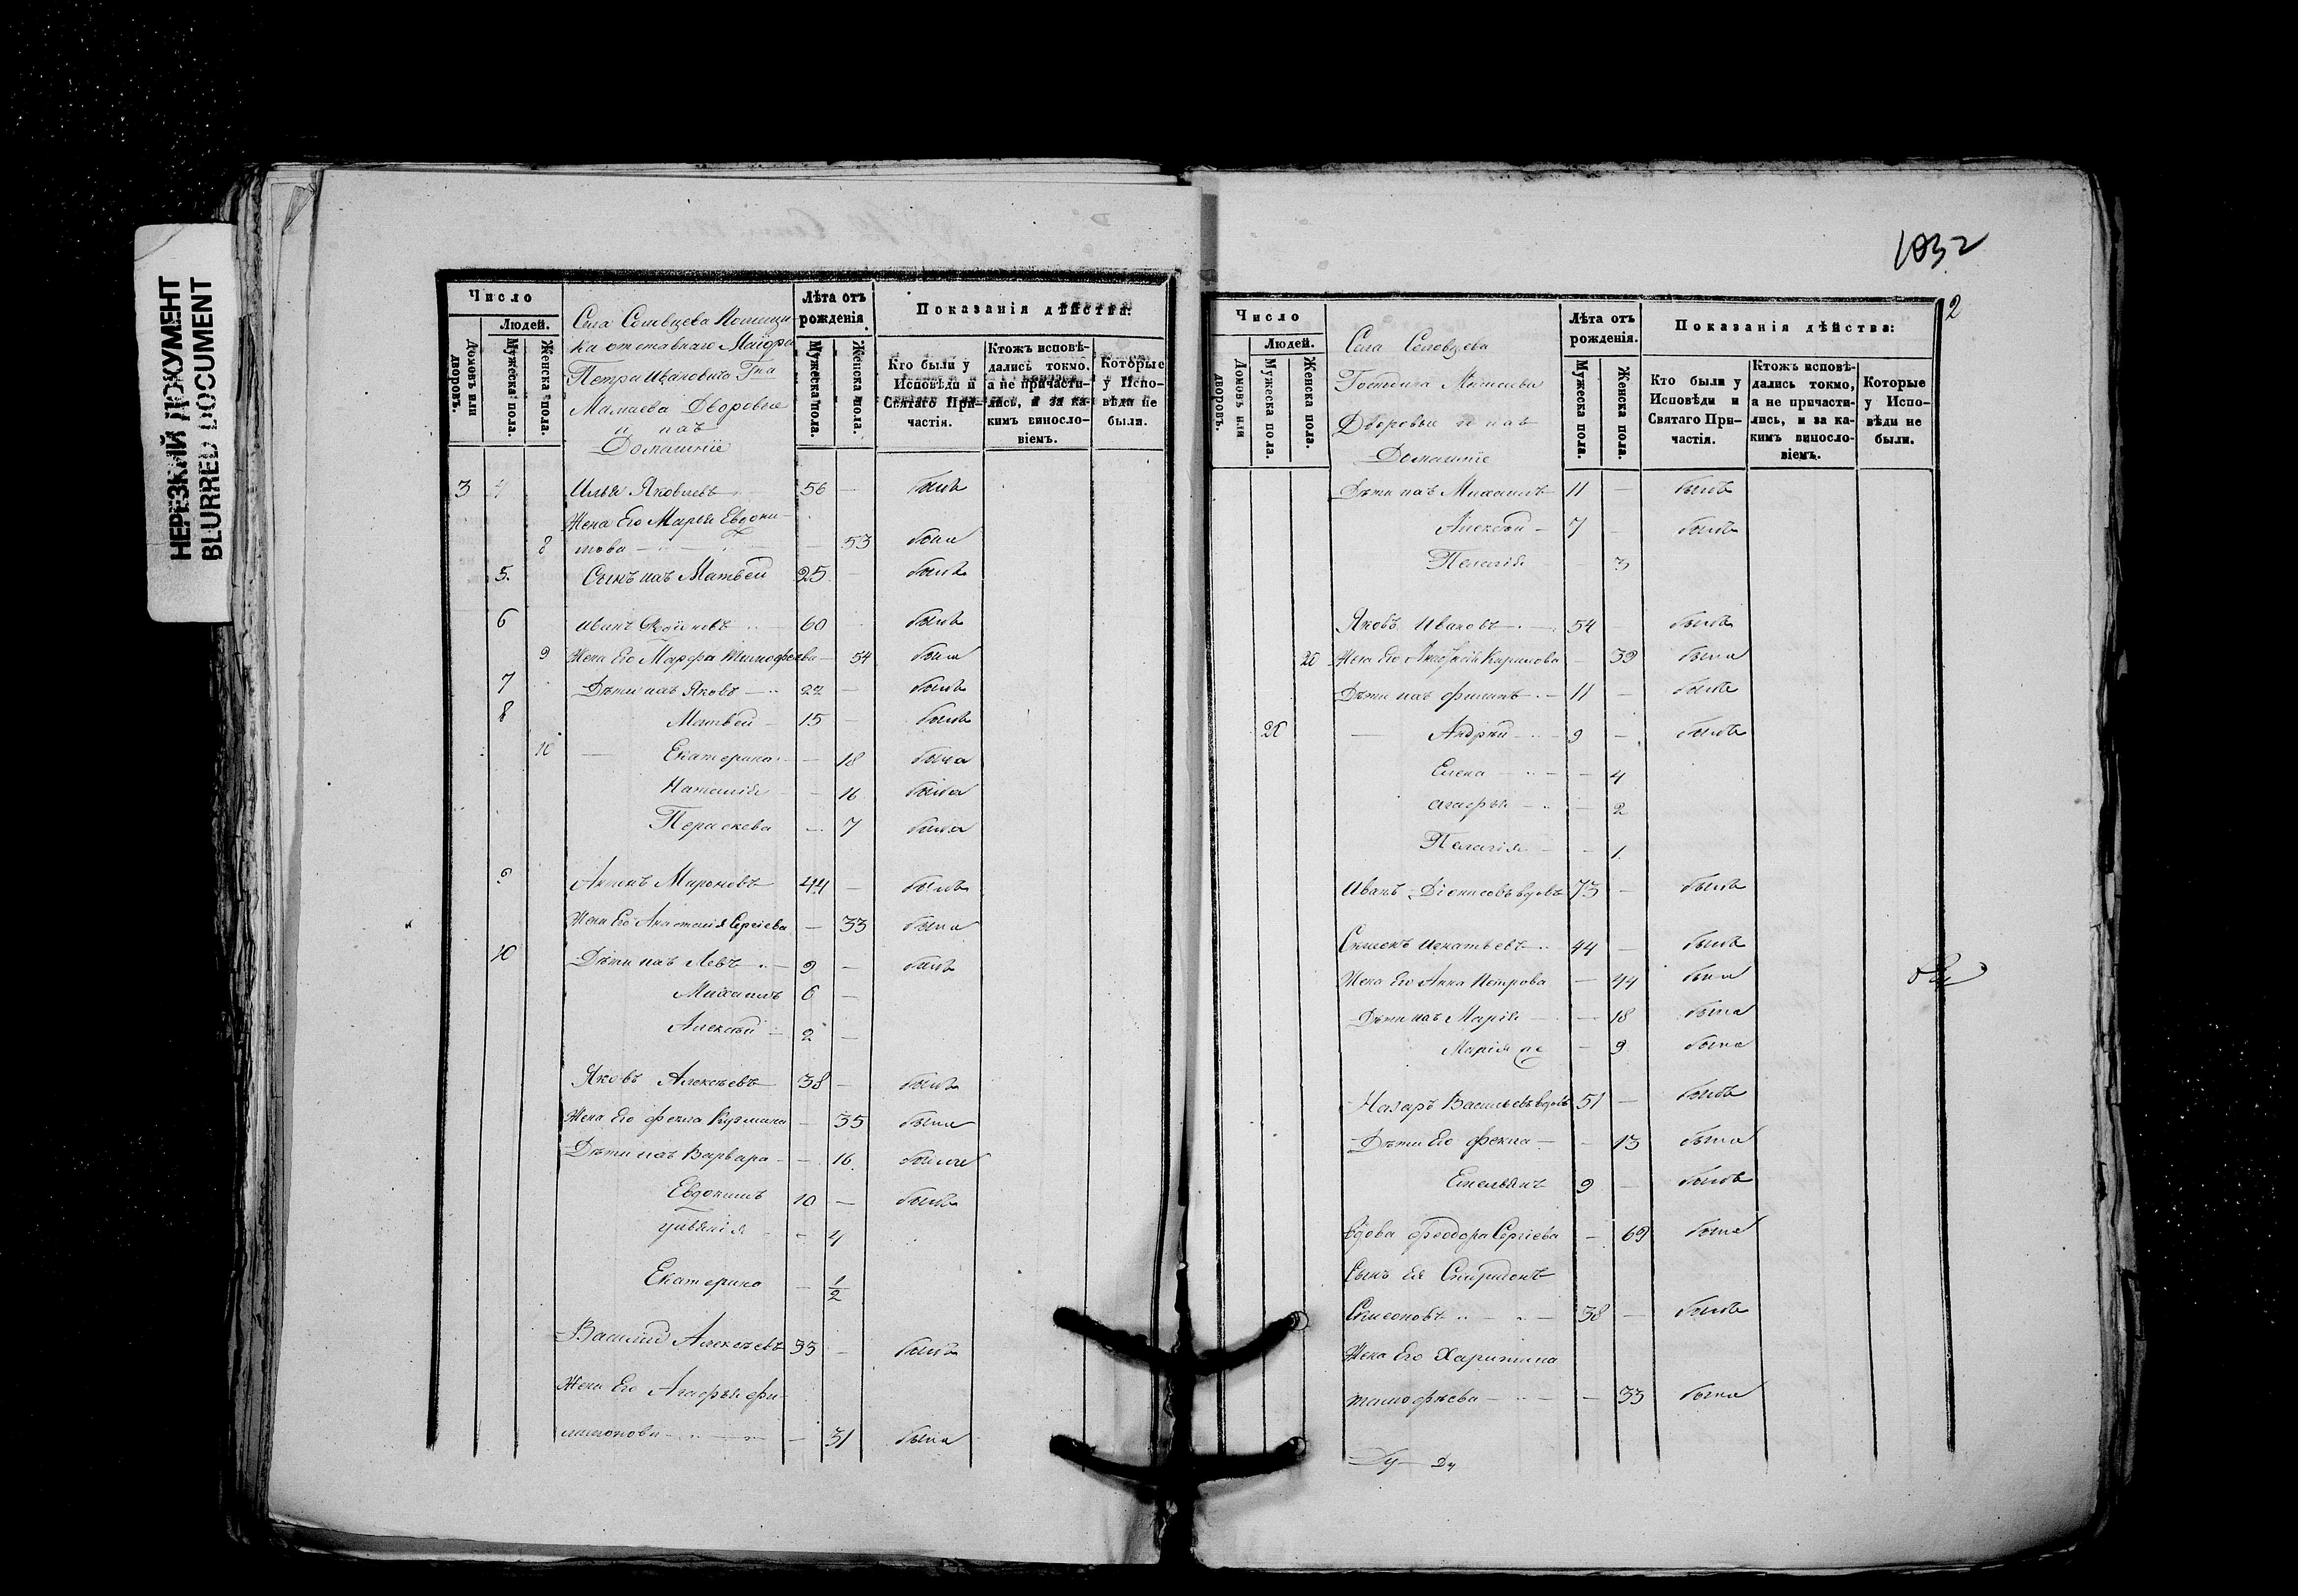 НЕРЕЗКИЙ ДОКУМЕНТ
BLURRED DOCUMENT
Число
Людей.
Домовъ или дворовъ.
Мужеска пола.
Женска пола.
Села Соловцева Помѣщи-
ка отставнаго Маіора
Петра Ивановича Гна
Мамаева Дворовые
и ихъ
Домашніе
Лѣта отъ рожденія
Мужеска пола.
Женска пола.
Показанія дѣйства:
Кто были у Исповѣди и Святаго Причастія.
Ктожъ исповѣдались токмо, а не причастились, и за какимъ винословіемъ.
Которые у Исповѣди не были.
3 4 Илья Яковлевъ 56 — былъ
Жена Его Марья Евдоки-
8 мова — 53 была
5. Сынъ ихъ Матвей 25 — былъ
6 Иванъ 60 былъ
9 Жена Его Марфа Тимофеева — 54 была
7 Дѣти ихъ Яковъ — 22 — былъ
8 Матвей — 15 — былъ
10 — Екатерина — 18 была
Наталія — 16 была
Параскева — 7 была
9 Антонъ Мироновъ 44 — былъ
Жена Его Анастасія Сергіева — 33 была
10 Дѣти ихъ Левъ — 9 — былъ
Михаилъ 6 —
Алексѣй — 2 —
Яковъ Алексѣевъ 38 — былъ
Жена Его Фекла Кузмина — 35 была
Дѣти ихъ Варвара — 16 была
Евдокимъ 10 — былъ
Уліянія — 4
Екатерина — 1/2
Василій Алексѣевъ 35 — былъ
Жена Его Агафья Фи-
лимонова — 31 была
1032
2
Число
Людей.
Домовъ или дворовъ.
Мужеска пола.
Женска пола.
Села Соловцева
Господина Мамаева
Дворовые и ихъ
Домашніе
Лѣта отъ рожденія.
Мужеска пола.
Женска пола.
Показанія дѣйства:
Кто были у Исповѣди и Святаго Причастія.
Ктожъ исповѣдались токмо, а не причастились, и за какимъ винословіемъ.
Которые у Исповѣди не были.
Дѣти ихъ Михаилъ 11 — былъ
Алексѣй — 7 — былъ
Пелагія — 3
Яковъ Ивановъ — 54 былъ
20 Жена Его Кирилова — 39 была
Дѣти ихъ Филипъ — 11 — былъ
20 — Андрей — 9 — былъ
Елена — 4
Агафья — 2
Пелагія — 1.
Иванъ Діонисовъ вдовъ 73 — былъ
Симеонъ Игнатьевъ 44 — былъ
Жена Его Анна Петрова — 44 была
Дѣти ихъ Марія — 18 была
Марія — 9 была
Назаръ Васильевъ вдовъ 51 — былъ
Дѣти Его Фекла — 13 была
Емельянъ 9 — былъ
Вдова Феодора Сергіева — 69 была
Сынъ Ея Спиридонъ
Симеоновъ — 38 — былъ
Жена Его Харитина
Тимофеева — 33 была